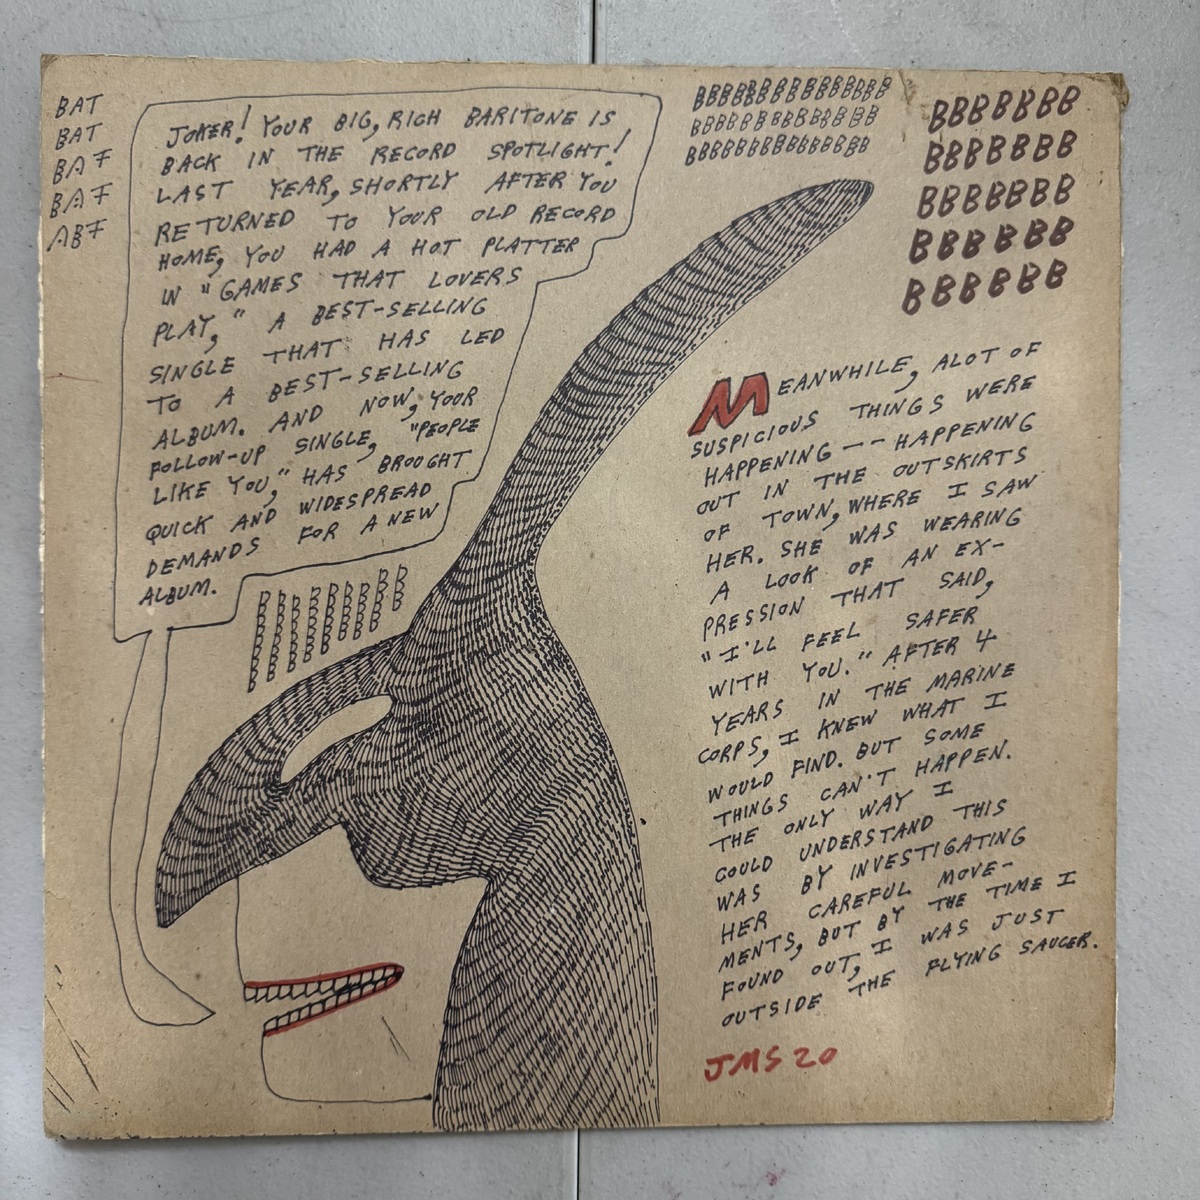 BAT
BAT
BAT
BAT
ABT
JOKER! YOUR BIG, RICH BARITONE IS
BACK IN THE RECORD SPOTLIGHT!
LAST YEAR, SHORTLY AFTER YOU
RETURNED TO YOUR OLD RECORD
HOME, YOU HAD A HOT PLATTER
IN "GAMES THAT LOVERS
PLAY," A BEST-SELLING
SINGLE THAT HAS LED
TO A BEST-SELLING
ALBUM. AND NOW, YOUR
FOLLOW-UP SINGLE, "PEOPLE
LIKE YOU," HAS BROUGHT
QUICK AND WIDESPREAD
DEMANDS FOR A NEW
ALBUM.
BBBBBBB
BBBBBBB
BBBBBBB
BBBBBB
BBBBBB
MEANWHILE, ALOT OF
SUSPICIOUS THINGS WERE
HAPPENING -- HAPPENING
OUT IN THE OUTSKIRTS
OF TOWN, WHERE I SAW
HER. SHE WAS WEARING
A LOOK OF AN EX-
PRESSION THAT SAID,
"I'LL FEEL SAFER
WITH YOU." AFTER 4
YEARS IN THE MARINE
CORPS, I KNEW WHAT I
WOULD FIND. BUT SOME
THINGS CAN'T HAPPEN.
THE ONLY WAY I
COULD UNDERSTAND THIS
WAS BY INVESTIGATING
HER CAREFUL MOVE-
MENTS, BUT BY THE TIME I
FOUND OUT, I WAS JUST
OUTSIDE THE FLYING SAUCER.
JMS 20